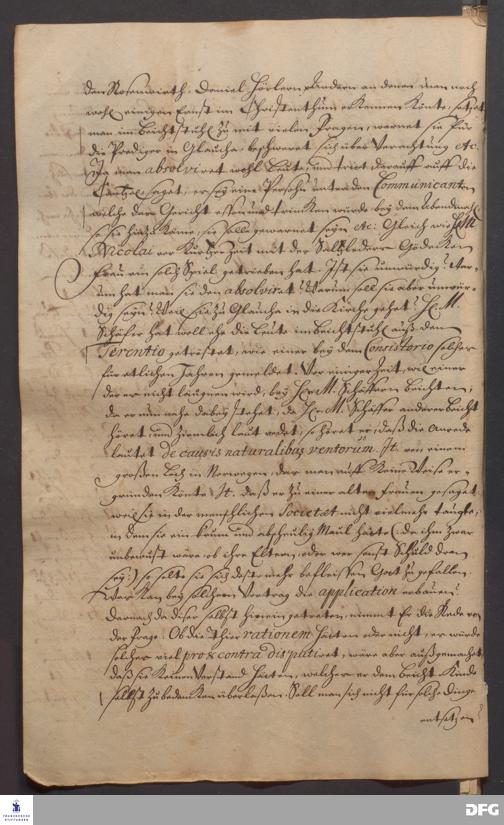 den Rosenwirth, Daniel Hörlern p Andern an denen man noch
wohl einigen Ernst im Christenthum erkennen könte, setzet
man im Beichtstuhl zu mit vielen Fragen, warnet sie für
die Prediger in Glaucha, beschweret sich über Verachtung etc.
Ja man absolviret wohl Leute, und trit darauff auff die
Cantzel saget, er seÿ eine Person unter den Communicanten
welche das Gericht essen und trincken würde beÿ dem Abendmahl
so sie hinzu käme, sie solle gewarnet seÿn etc: Gleich wie H. M.
Nicolai vor kurtzer Zeit mit der
Frau ein solch Spiel getrieben hat. Ist sie unwürdig? War-
um hat man sie den absolviret? Warum soll sie aber unwür-
dig seÿn? Weil sie zu Glaucha in die Kirche gehet? H. M.
Schäfer hat wohl ehe die Leute im Beichtstuhl auß dem
Terentio getröstet, wie einer beÿ dem Consistorio solches
für etlichen Jahren gemeldet. Vor einiger Zeit, wie einer
der es nicht läugnen wird, beÿ H. M. Schäffern beichten,
da er nun nahe dabeÿ stehet, da H. M. Schäffer anderer Beicht
höret, und ziemlich laut redet, so höret er, daß die Anrede
lautet de causis naturalibus ventorum. It. von einem
großen Loch in Norwegen, das man auff keine Weise er-
gründen könte. It. daß er zu einer alten Frauen gesaget:
weil sie in der menschlichen Societät nicht vielmehr taugte,
in dem sie ein krum und abscheulig Maul hätte (da ihm zwar
unbewust wäre ob ihre Eltern, oder wer sonst Schuld dran
seÿ:) so solte sie sich desto mehr befleissen Gott zu gefallen.
Wer kan beÿ solchem Vortrag die application erbauen?
Darnach da dieser selbst hinein getreten, nimmt Er die Rede von
der Frage: Ob die Thier rationem hätten oder nicht, er würde
solcher viel pro & contra disputiret, wäre aber außgemachet
daß sie keinen Verstand hätten, welches er dem Beicht-Kinde
selbst zu bedencken überlaßen. Soll man sich nicht für solche Dinge
entsetzen?
FRANCKESCHE
STIFTUNGEN
DFG